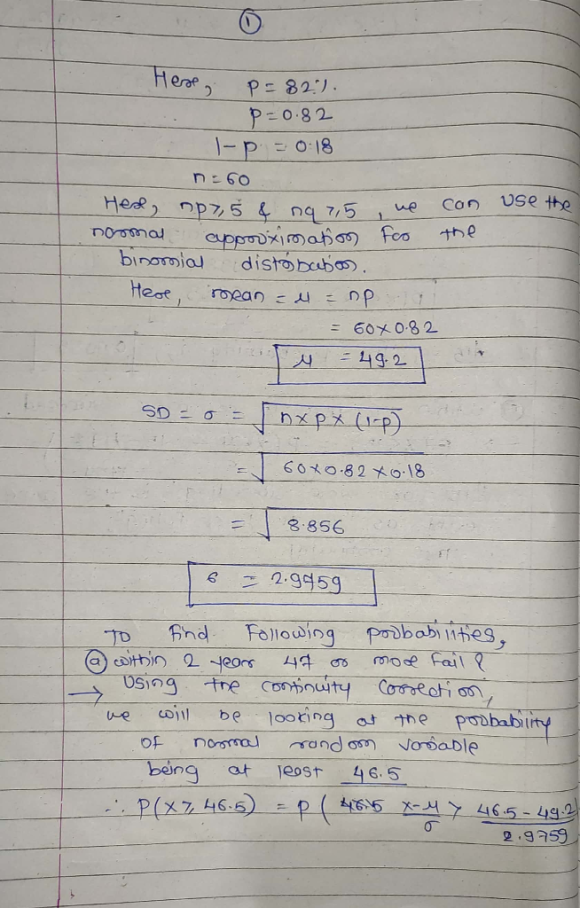 ①
Here, p = 82%.
p = 0.82
1-p = 0.18
n = 60
Here, np ≥ 5 & nq ≥ 5, we can use the
normal approximation for the
binomial distribution.
Here, mean = μ = np
= 60 × 0.82
μ = 49.2
SD = σ = √n×p×(1-p)
= √60×0.82×0.18
= √8.856
σ = 2.9759
To find following probabilities,
ⓐ within 2 year 47 or more fail?
→ Using the continuity correction,
we will be looking at the probability
of normal random variable
being at least 46.5
∴ P(X ≥ 46.5) = P( 46.5 X-μ/σ > 46.5-49.2/2.9759